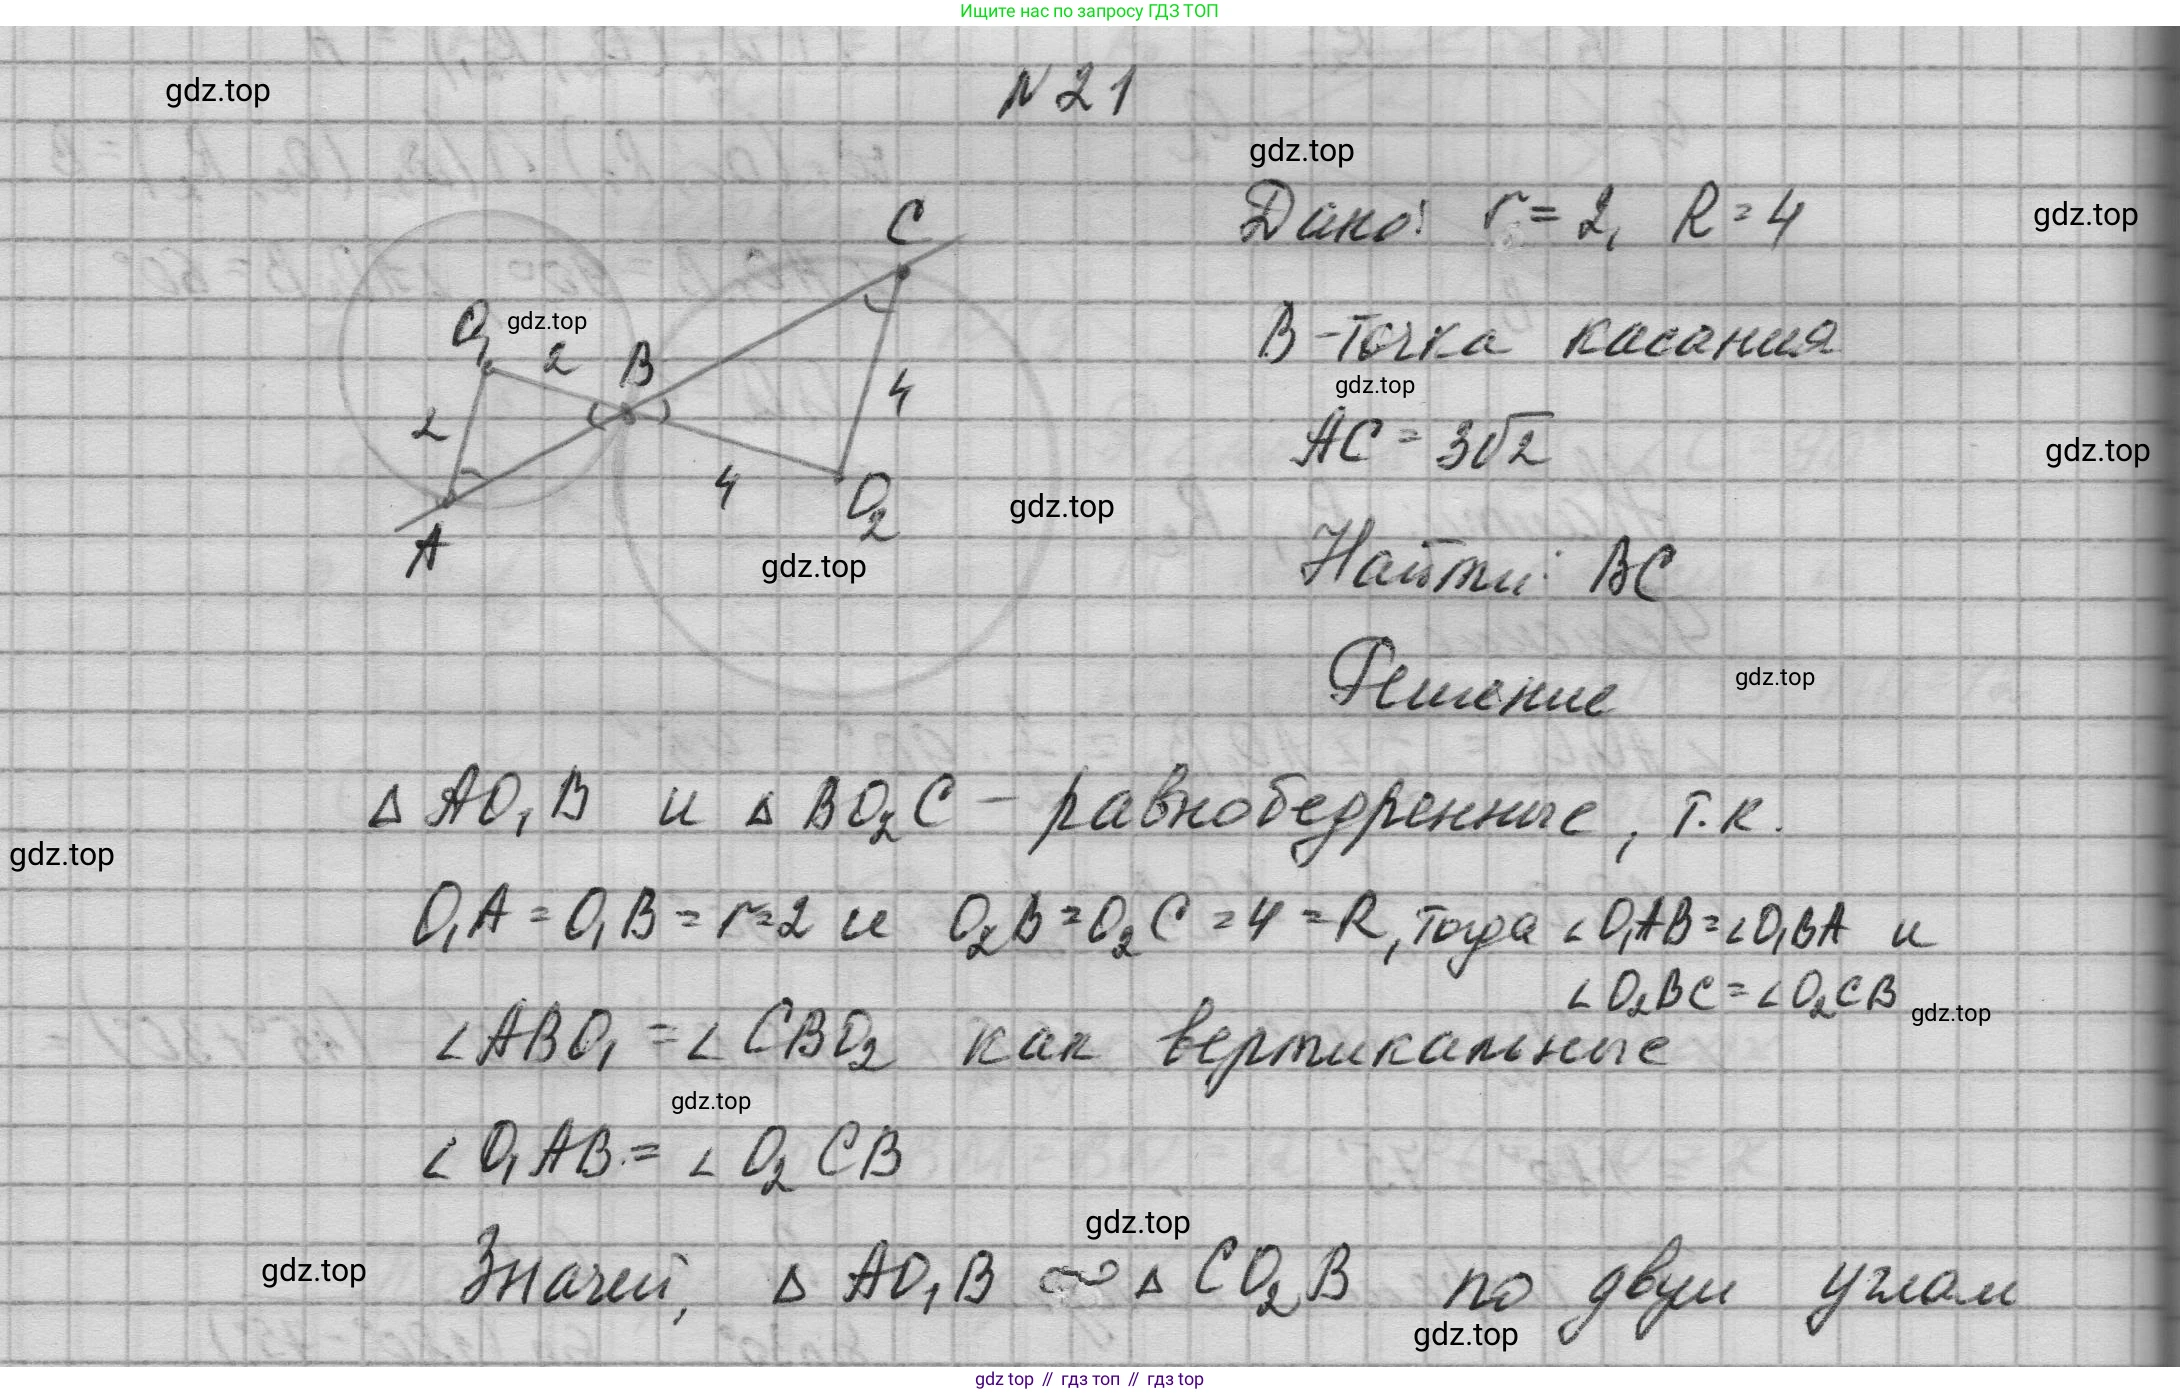 Ищите нас по запросу ГДЗ ТОП
N 21
gdz.top
gdz.top
Дано: r = 2, R = 4
gdz.top
C
O₁
gdz.top
2
B
B - точка касания
gdz.top
2
4
AC = 3√2
gdz.top
4
O₂
gdz.top
A
gdz.top
Найти: BC
Решение
gdz.top
△ AO₁B и △ BO₂C - равнобедренные, т.к.
gdz.top
O₁A = O₁B = r = 2 и O₂B = O₂C = 4 = R, тогда ∠O₁AB = ∠O₁BA и
∠O₂BC = ∠O₂CB
gdz.top
∠ABO₁ = ∠CBO₂ как вертикальные
gdz.top
∠O₁AB = ∠O₂CB
gdz.top
gdz.top
Значей, △ AO₁B ∾ △ CO₂B по двум углам
gdz.top
gdz top // гдз топ // гдз top